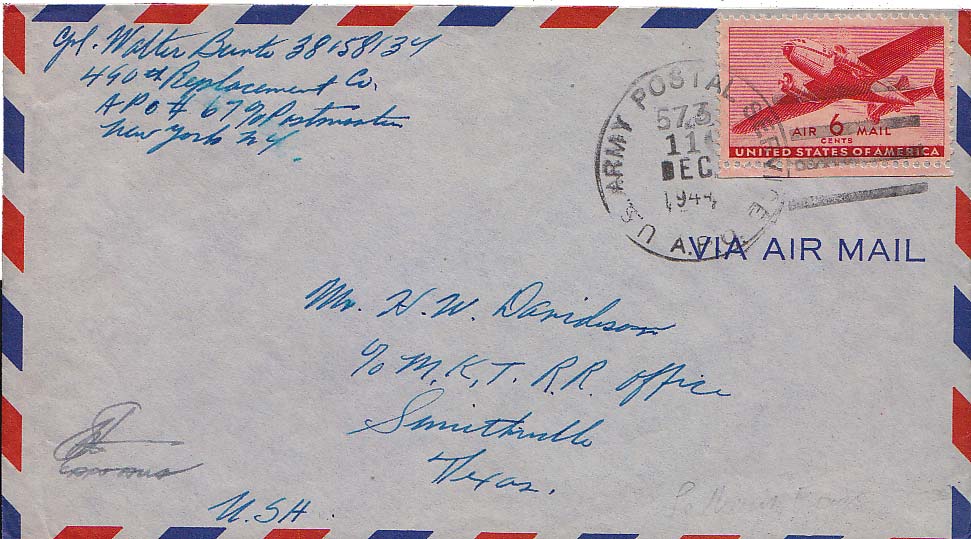 Cpl. Walter Bunte 38158134
490th Replacement Co.
A P O # 67 % Postmaster
New York N.Y.
U.S. ARMY POSTAL SERVICE
A.P.O.
573
110
DEC
1944
AIR 6 MAIL
CENTS
UNITED STATES OF AMERICA
VIA AIR MAIL
Mr. H. W. Davidson
c/o M.K.T. R.R. Office
Smithville
Texas.
U.S.A.